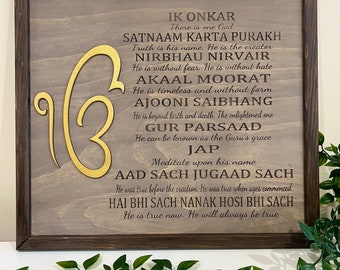 ੴ
IK ONKAR
There is one God
SATNAAM KARTA PURAKH
Truth is his name. He is the creator
NIRBHAU NIRVAIR
He is without fear. He is without hate
AKAAL MOORAT
He is timeless and without form
AJOONI SAIBHANG
He is beyond birth and death. The enlightened one
GUR PARSAAD
He can be known as the Guru's grace
JAP
Meditate upon his name
AAD SACH JUGAAD SACH
He was true before the creation. He was true when ages commenced
HAI BHI SACH NANAK HOSI BHI SACH
He is true now. He will always be true